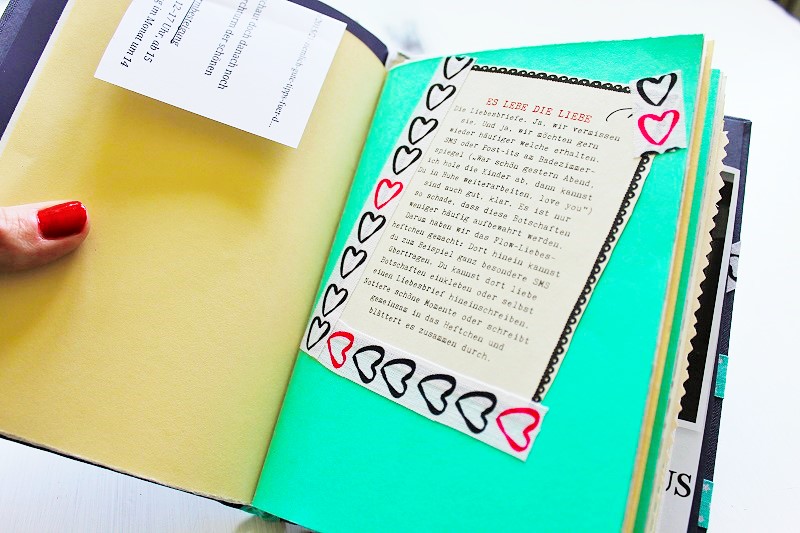 /ziemlich-gute-tipps-fuer-d...
chau dich danach noch
rchturm der schönen
rmbesteigung
12-17 Uhr, ab 15
g im Monat um 14
ES LEBE DIE LIEBE
Die Liebesbriefe. Ja, wir vermissen
sie. Und ja, wir möchten gern
wieder häufiger welche erhalten.
SMS oder Post-its am Badezimmer-
spiegel („War schön gestern Abend.
Ich hole die Kinder ab, dann kannst
Du in Ruhe weiterarbeiten, love you“)
sind auch gut, klar. Es ist nur
so schade, dass diese Botschaften
weniger häufig aufbewahrt werden.
Darum haben wir das Flow-Liebes-
heftchen gemacht: Dort hinein kannst
du zum Beispiel ganz besondere SMS
übertragen. Du kannst dort liebe
Botschaften einkleben oder selbst
einen Liebesbrief hineinschreiben.
Notiere schöne Momente oder schreibt
gemeinsam in das Heftchen und
blättert es zusammen durch.
US